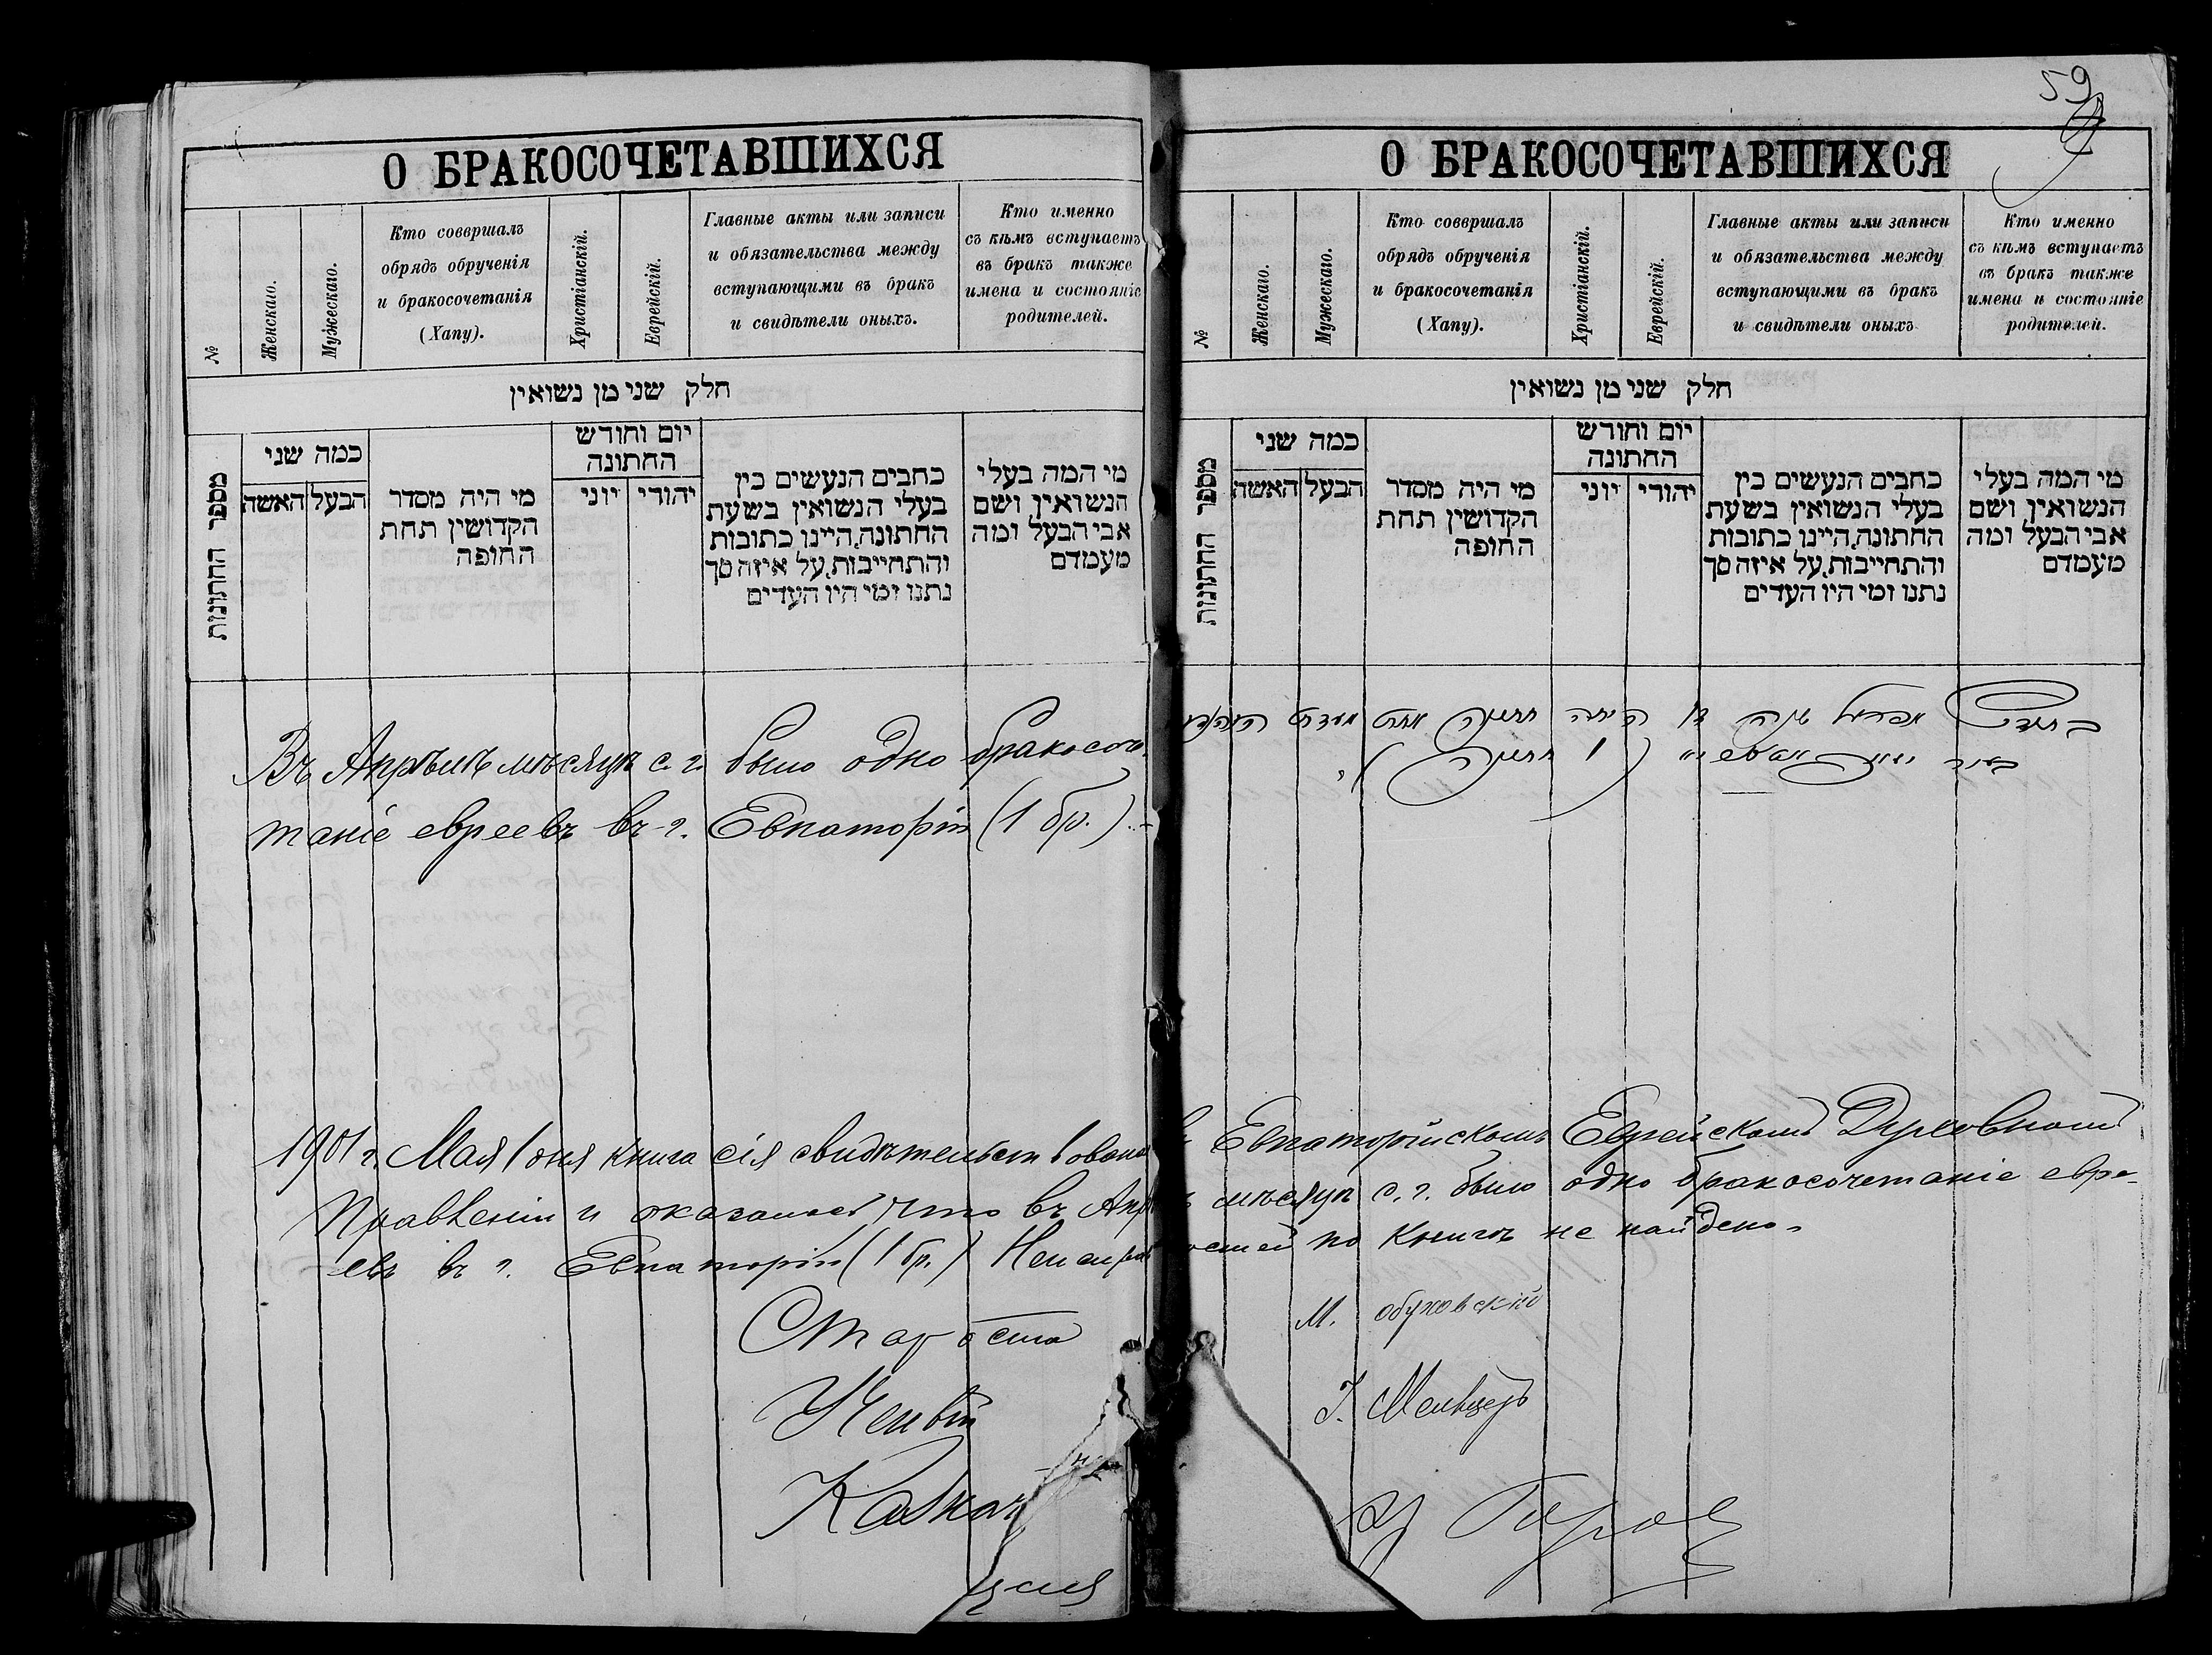 О БРАКОСОЧЕТАВШИХСЯ
№
Женскаго.
Мужескаго.
Кто соввршалъ
обрядъ обрученія
и бракосочетанія
(Хапу).
Христіанскій.
Еврейскій.
Главные акты или записи
и обязательства между
вступающими въ бракъ
и свидѣтели оныхъ.
Кто именно
съ кѣмъ вступаетъ
въ бракъ также
имена и состояніе
родителей.
חלק שני מן נשואין
מספר החתונות
כמה שני
האשה
הבעל
מי היה מסדר
הקדושין תחת
החופה
יום וחודש
החתונה
יוני
יהודי
כתבים הנעשים בין
בעלי הנשואין בשעת
החתונה, היינו כתובות
והתחייבות, על איזה סך
נתנו ומי היו העדים
מי המה בעלי
הנשואין ושם
אבי הבעל ומה
מעמדם
Въ Апрѣлѣ мѣсяцѣ с. г. было одно бракосоче-
таніе евреевъ въ г. Евпаторіи (1 бр.).-
59
О БРАКОСОЧЕТАВШИХСЯ
№
Женскаго.
Мужескаго.
Кто соввршалъ
обрядъ обрученія
и бракосочетанія
(Хапу).
Христіанскій.
Еврейскій.
Главные акты или записи
и обязательства между
вступающими въ бракъ
и свидѣтели оныхъ
Кто именно
съ кѣмъ вступаетъ
въ бракъ также
имена и состояніе
родителей.
חלק שני מן נשואין
מספר החתונות
כמה שני
האשה
הבעל
מי היה מסדר
הקדושין תחת
החופה
יום וחודש
החתונה
יוני
יהודי
כתבים הנעשים בין
בעלי הנשואין בשעת
החתונה, היינו כתובות
והתחייבות, על איזה סך
נתנו ומי היו העדים
מי המה בעלי
הנשואין ושם
אבי הבעל ומה
מעמדם
אפריל היתה חתונה אחת
(1 חתונה)
1901 г. Мая 1 дня книга сія свидѣтельствована въ Евпаторійскомъ Еврейскомъ Духовномъ
Правленіи и оказалось что въ Апр мѣсяцѣ с. г. было одно бракосочетаніе евре-
евъ въ г. Евпаторіи (1 бр.) Неисправностей по книгѣ не найдено.
Староста М. Обуховскій
Ученый І. Мельцеръ
Казнач